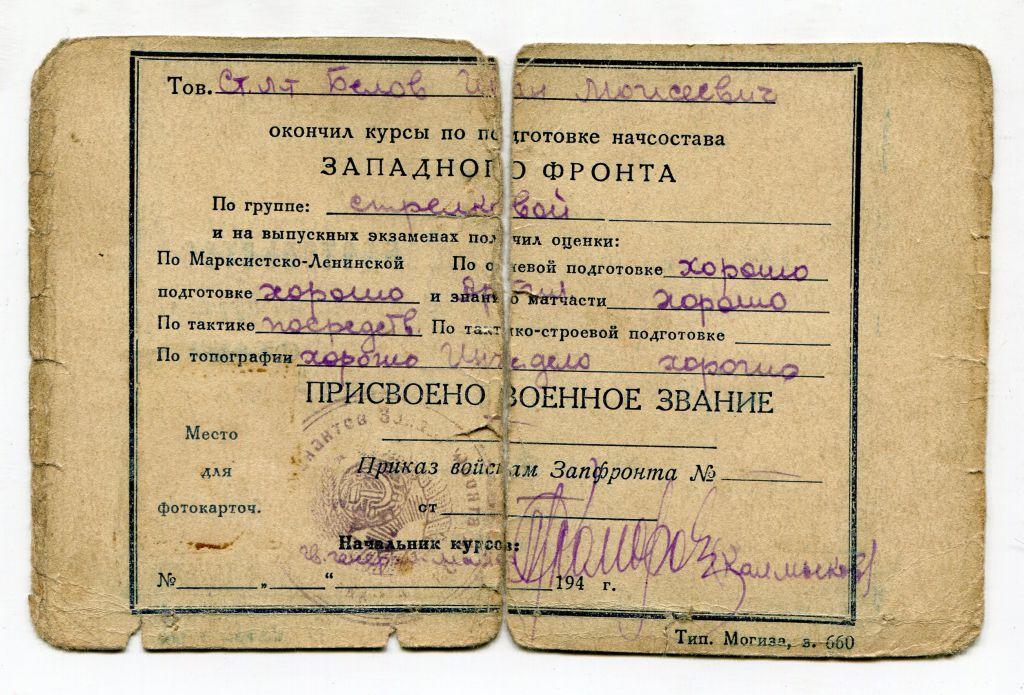 Тов. Ст. Лт Белов Иван Моисеевич
окончил курсы по подготовке начсостава
ЗАПАДНОГО ФРОНТА
По группе: стрелковой
и на выпускных экзаменах получил оценки:
По Марксистско-Ленинской По огневой подготовке хорошо
подготовке хорошо и знанию матчасти хорошо
По тактике посредств. По тактико-строевой подготовке
По топографии хорошо Инж. дело хорошо
ПРИСВОЕНО ВОЕННОЕ ЗВАНИЕ
Место
для
фотокарточ.
Приказ войскам Запфронта №
от
Начальник курсов:
гв. генерал-майор (Калмыков)
№ „ “ 194 г.
Тип. Могиза, з. 660